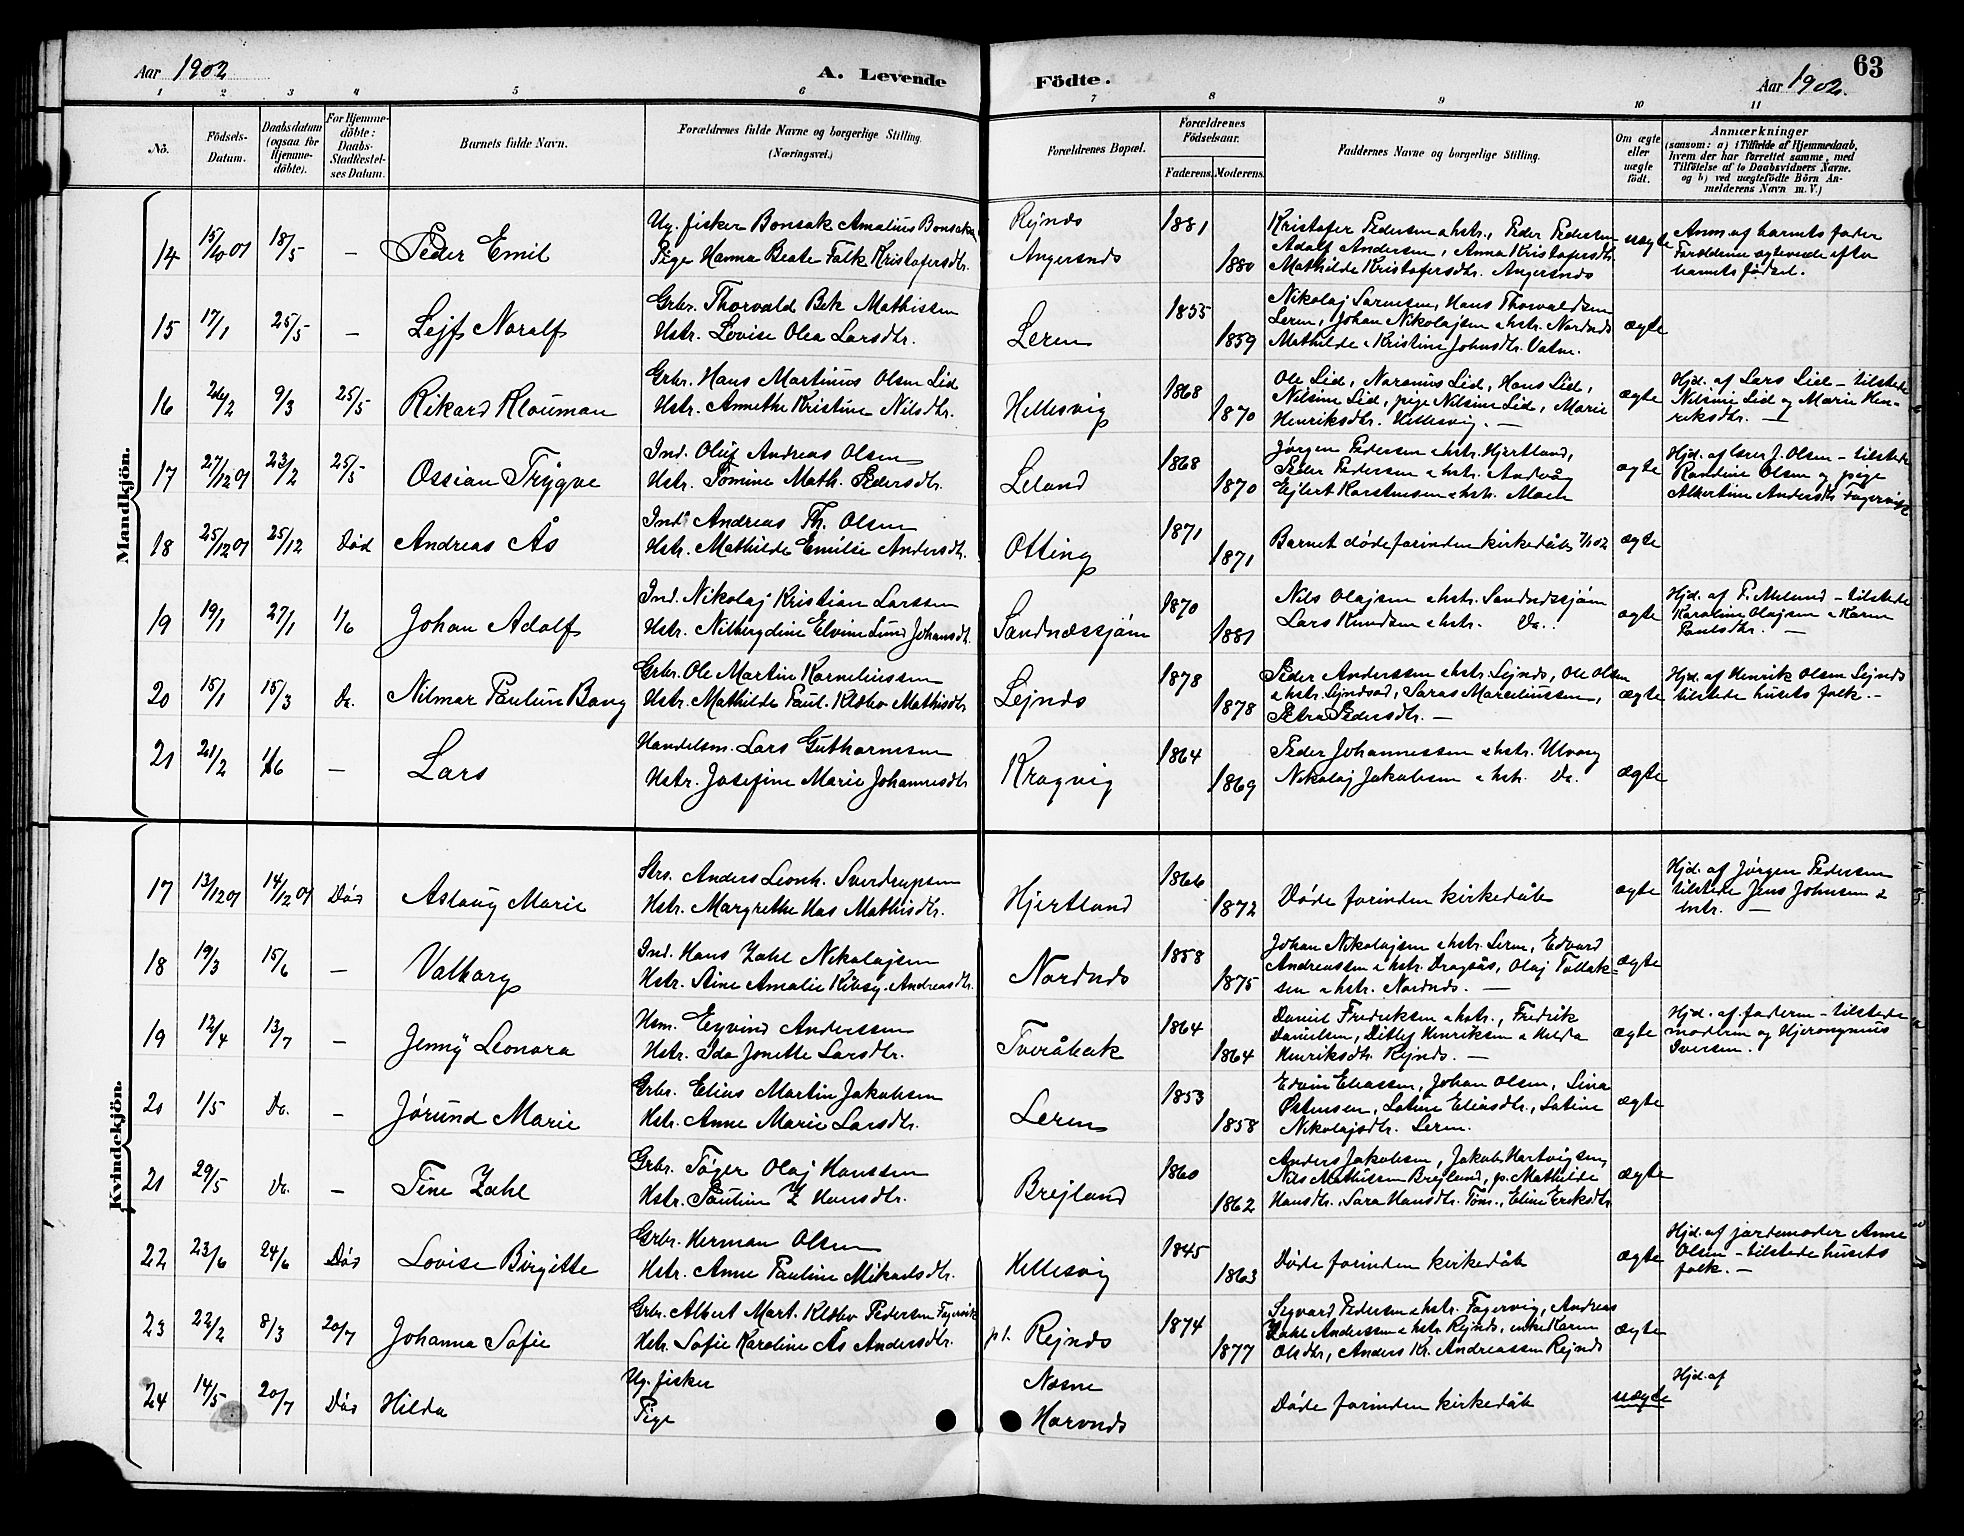 Aar 1902
A. Levende
Födte.
Aar 1902.
63
1 2 3 4 5 6 7 8 9 10 11
No.
Födsels-
Datum.
Daabsdatum
(ogsaa for
Hjemme-
döbte).
For Hjemme-
döbte:
Daabs-
Stadfæstel-
ses Datum.
Barnets fulde Navn.
Forældrenes fulde Navne og borgerlige Stilling.
(Næringsvei.)
Forældrenes Bopæl.
Forældrenes
Födselsaar.
Faderens. Moderens.
Faddernes Navne og borgerlige Stilling.
Om ægte
eller
uægte
födt.
Anmærkninger
(saasom: a) i Tilfælde af Hjemmedaab,
hvem der har forrettet samme, med
Tilföielse af to Daabsvidners Navne.
og b) ved uægtefödte Börn An-
melderens Navn m. V.)
Mandkjön.
14 15/10 01 18/5 — Peder Emil
Ug. fisker Bonsak Amalius Bonsaksen
Pige Hanna Beate Falk Kristofersdtr.
Rejnæs
Angersnæs
1881
1880
Kristofer Pedersen & hstr., Peder Pedersen
Adolf Andersen, Anna Kristofersdtr.
Mathilde Kristofersdtr. Angersnæs
uægte
Anm. af barnets fader
Forældrene ægteviede efter
barnets fødsel.
15 17/1 25/5 — Lejf Noralf
Grbr. Thorvald Bek Mathissen
Hstr. Lovise Olea Larsdtr.
Leren
1855
1859
Nikolaj Larnesen, Hans Thorvaldsen
Leren, Johan Nikolajsen & hstr. Nordnæs
Mathilde & Kristine Johnsdtr. Vatne.
ægte
16 26/2 9/3 25/5 Rikard Klouman
Grbr. Hans Martinus Olsen Lid
Hstr. Annethe Kristine Nilsdtr.
Hellesvig
1868
1870
Ole Lid, Naranius Lid, Hans Lid,
Nilsine Lid, pige Nilsine Lid, Marie
Henriksdtr. Hellesvig. —
ægte
Hjd. af Lars Lid – tilstede
Nilsine Lid og Marie Hen-
riksdtr. —
17 27/12 01 23/2 25/5 Ossian Trygve
Ind. Oluf Andreas Olsen
Hstr. Tomine Math. Pedersdtr.
Leland
1868
1870
Jørgen Pedersen & hstr. Hjertland,
Peder Pedersen & hstr. Andvåg
Ejlert Karstensen & hstr. Moen
ægte
Hjd. af lærer J. Olsen – tilstede
Randine Olsen og pige
Albertine Andersdtr Fagervik
18 25/12 01 25/12 Død Andreas Ås
Ind. Andreas Th. Olsen
Hstr. Mathilde Emilie Andersdtr.
Otting
1871
1871
Barnet døde forinden kirkedåb 7/1 02
ægte
19 19/1 27/1 1/6 Johan Adolf
Ind. Nikolaj Kristian Larssen
Hstr. Nilbergdine Elvine Lund Johansdtr.
Sandnæssjøen
1870
1881
Nils Olajsen & hstr. Sandnæssjøen
Lars Knudsen & hstr. Do.
ægte
Hjd. af P. Meland – tilstede
Karoline Olajsen & Karen
Paulsdtr. —
20 15/1 15/3 Do. Nilmar Paulin Bang
Grbr. Ole Martin Korneliussen
Hstr. Mathilde Paul. Klæbo Mathisdtr
Lejnæs
1878
1878
Peder Anderssen & hstr. Lejnæs, Ole Olsen
& hstr. Lejnæsød, Saras Marseliussen,
Petra Pedersdtr. —
ægte
Hjd. af Henrik Olsen Lejnæs
tilstede husets folk. —
21 21/2 1/6 — Lars
Handelsm. Lars Guthormsen
Hstr. Josefine Marie Johannesdtr
Kragvig
1864
1869
Peder Johannessen & hstr. Ulvang
Nikolaj Jakobsen & hstr. Do.
ægte
Kvindekjön.
17 13/12 01 14/12 01 Død Aslaug Marie
Strs. Anders Leonh. Sverdrupsen
Hstr. Margrethe Has Mathisdtr.
Hjertland
1866
1872
Døde forinden kirkedåb
ægte
Hjd. af Jørgen Pedersen
tilstede Jens Johnsen &
hstr. —
18 19/3 15/6 — Valborg
Ind. Hans Zahl Nikolajsen
Hstr. Aine Amalie Kibsg. Andreasdtr.
Nordnæs
1858
1875
Johan Nikolajsen & hstr. Leren, Edvard
Andreassen & hstr. Dragsås, Olaj Tollak-
sen & hstr. Nordnæs. —
ægte
19 12/4 13/7 — Jenny Leonora
Hsm. Eyvind Anderssen
Hstr. Ida Jonette Larsdtr.
Tveråbæk
1864
1864
Daniel Fredriksen & hstr., Fredrik
Danielsen, Ditlef Henriksen & Helda
Henriksdtr. Rejnæs. —
ægte
Hjd. af faderen – tilstede
moderen og Hjeronymus
Iversen.
20 1/5 Do. — Jørund Marie
Grbr. Elias Martin Jakobsen
Hstr. Anne Marie Larsdtr.
Leren
1853
1858
Edvin Eliassen, Johan Olsen, Lina
Østensen, Lotine Eliasdtr., Lotine
Nikolajsdtr. Leren.
ægte
21 29/5 Do. — Tine Zahl
Grbr. Tøger Olaj Hanssen
Hstr. Pauline Z Hansdtr.
Brejland
1860
1862
Anders Jakobsen, Jakob Hartvigsen,
Nils Mathissen Brejland, p. Mathilde
Hansdtr. Sara Hansdtr. Tøm., Eline Eriksdtr
ægte
22 23/6 24/6 Død Lovise Birgitte
Grbr. Herman Olsen
Hstr. Anne Pauline Mikaelsdtr.
Hellesvig
1845
1863
Døde forinden kirkedåb
ægte
Hjd. af jordemoder Anne
Olsen – tilstede husets
folk. —
23 22/2 8/3 20/7 Johanna Sofie
Grbr. Albert Mart. Klæbo Pedersen Fagervik
Hstr. Sofie Karoline Ås Andersdtr.
pt. Rejnæs
1874
1877
Segvard Pedersen & hstr. Fagervig, Andreas
Zahl Anderssen & hstr Rejnæs, enke Karen
Olsdtr, Anders Kr. Andreassen Rejnæs
ægte
24 14/5 20/7 Død Hilda
Ug. fisker
Pige
Næsne
Havnæs
Døde forinden kirkedåb
uægte
Hjd. af